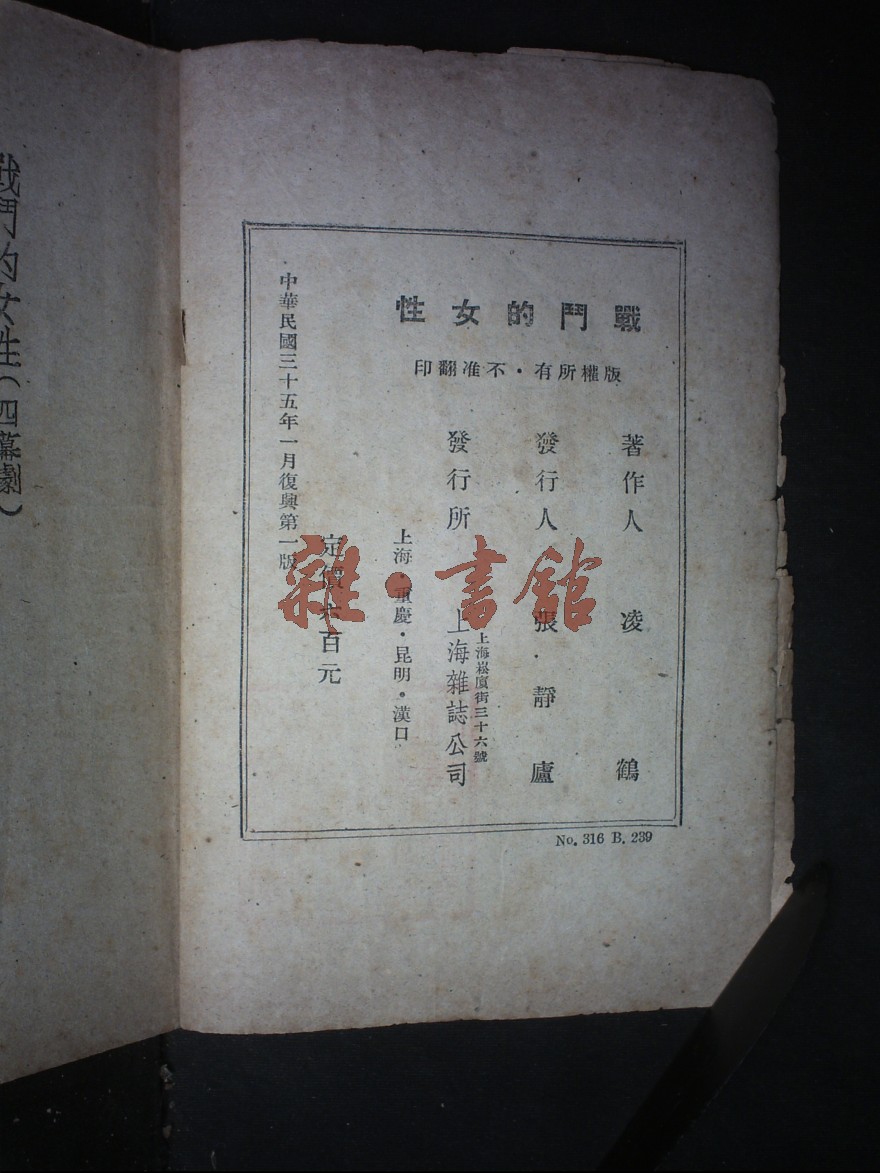 戰鬥的女性
版權所有·不准翻印
著作人 凌鶴
發行人 張靜廬
發行所 上海雜誌公司
上海崧廈街三十六號
上海·重慶·昆明·漢口
定價六百元
中華民國三十五年一月復興第一版
No. 316 B. 239
戰鬥的女性(四幕劇)
雜·書館